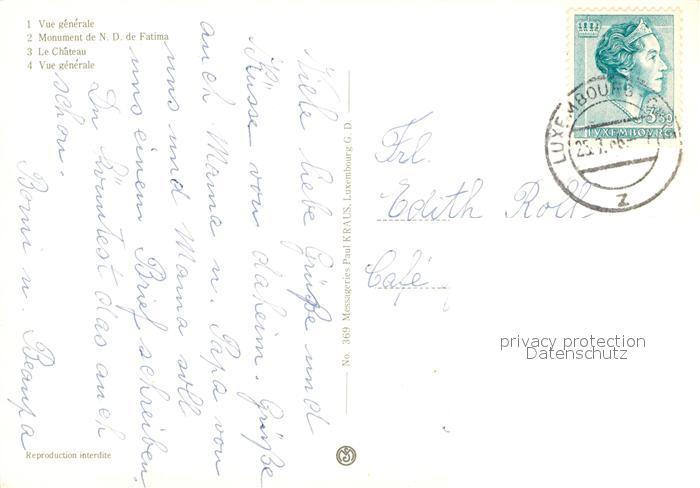 1 Vue générale
2 Monument de N. D. de Fatima
3 Le Château
4 Vue générale
Viele liebe Grüße und
Küsse von daheim. Grüße
auch Mama u. Papa von
uns und Mama soll
uns einem Brief schreiben,
Du könntest das auch
schon.
Bomi u. Beaupa
Reproduction interdite
No. 369 Messageries Paul KRAUS, Luxembourg G. D.
Frl.
Edith Roll
Café
3,50
LUXEMBOURG
LUXEMBOURG
25.7.66
Z
privacy protection
Datenschutz